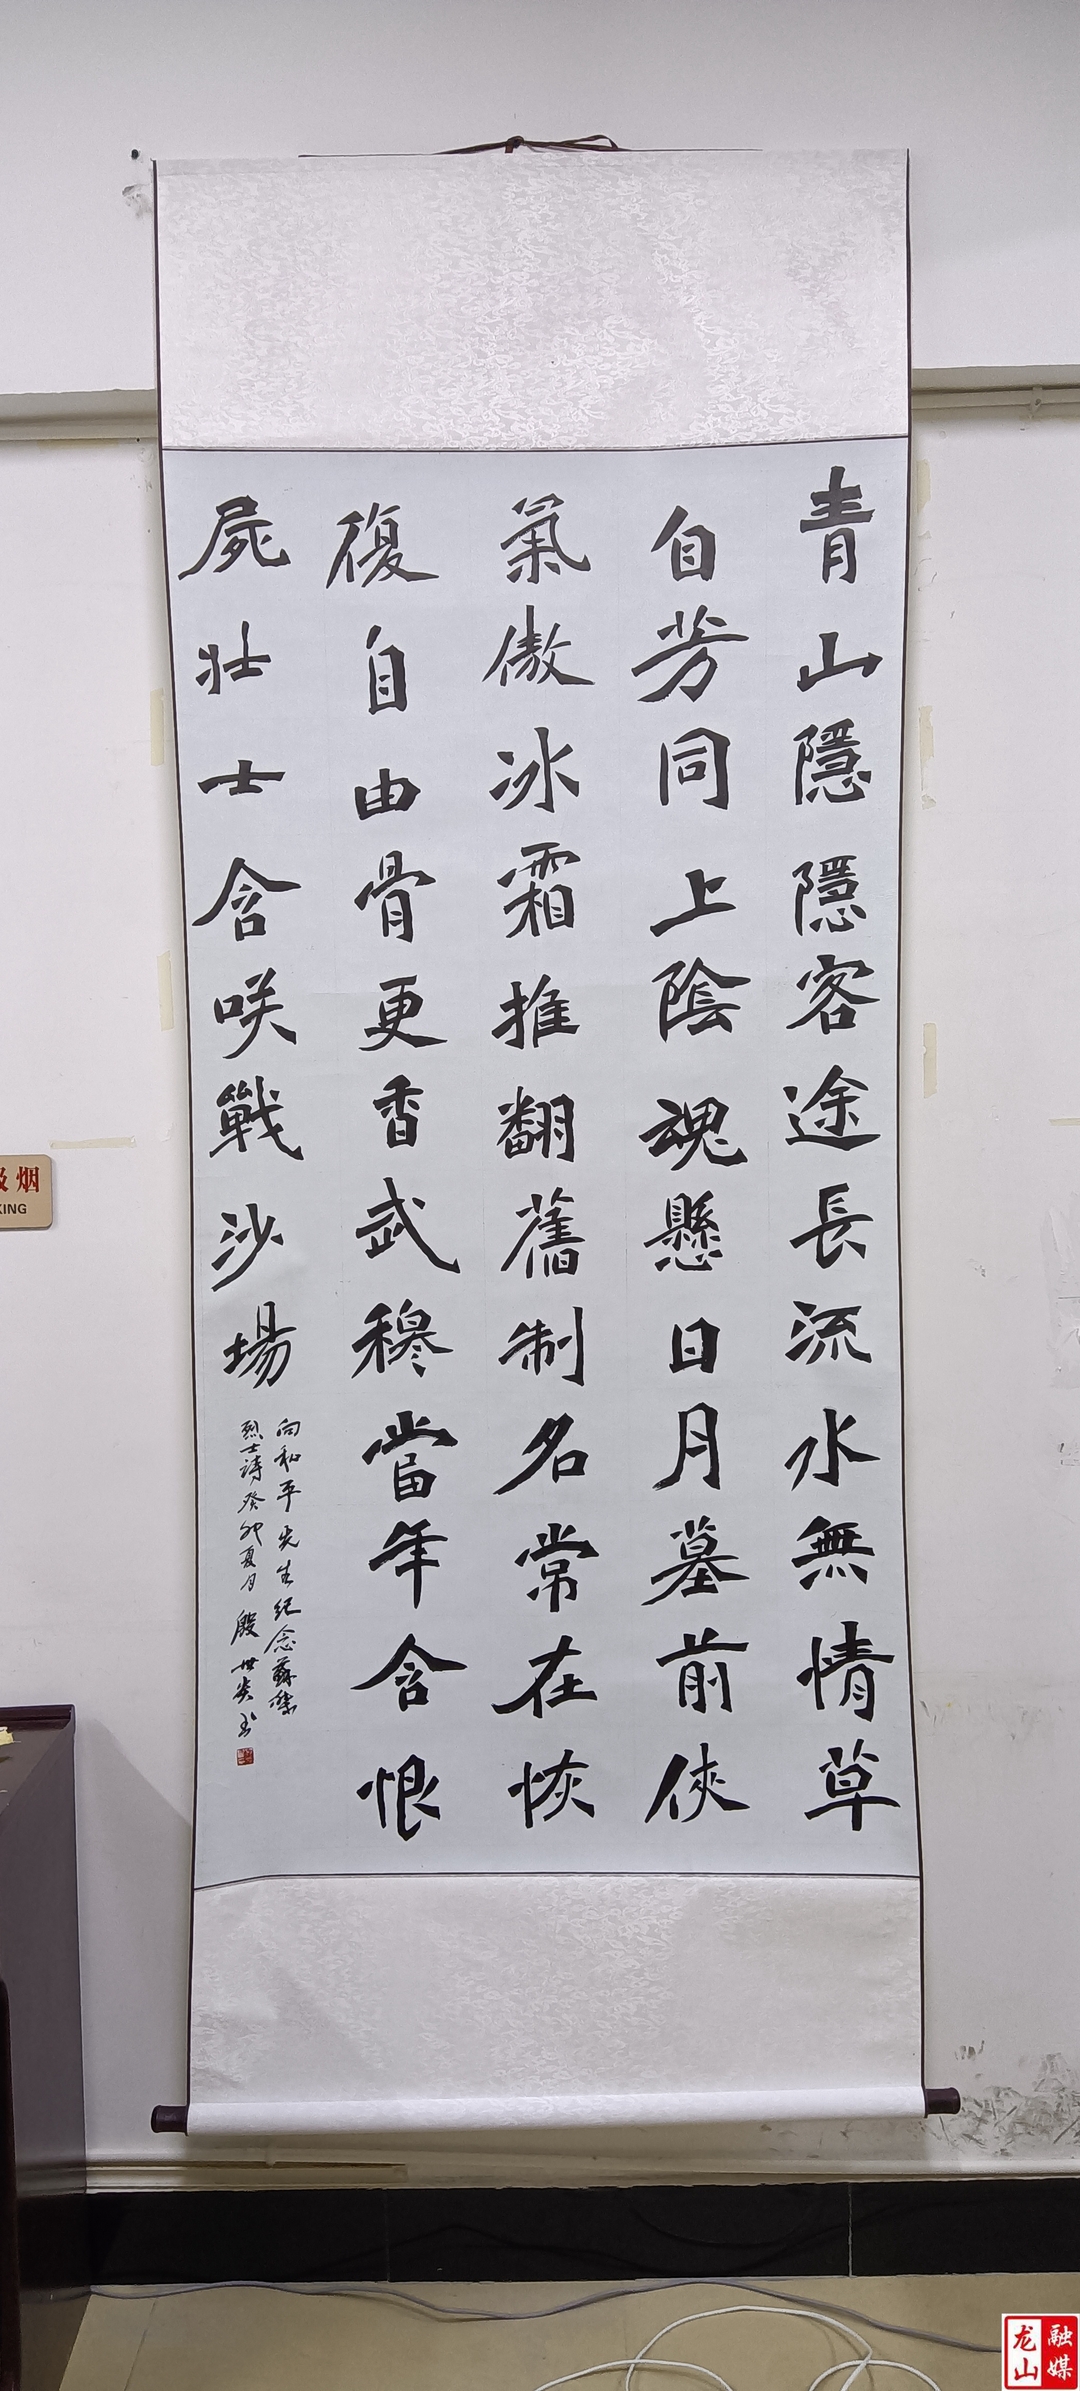 青山隱隱客途長流水無情草
自芳同上陰魂懸日月墓前俠
氣傲冰霜推翻舊制名常在恢
復自由骨更香武穆當年含恨
屍壯士含咲戰沙場
向和平先生纪念蘇傑
烈士诗癸卯夏月殷世炎书
吸烟
KING
龙山
融媒